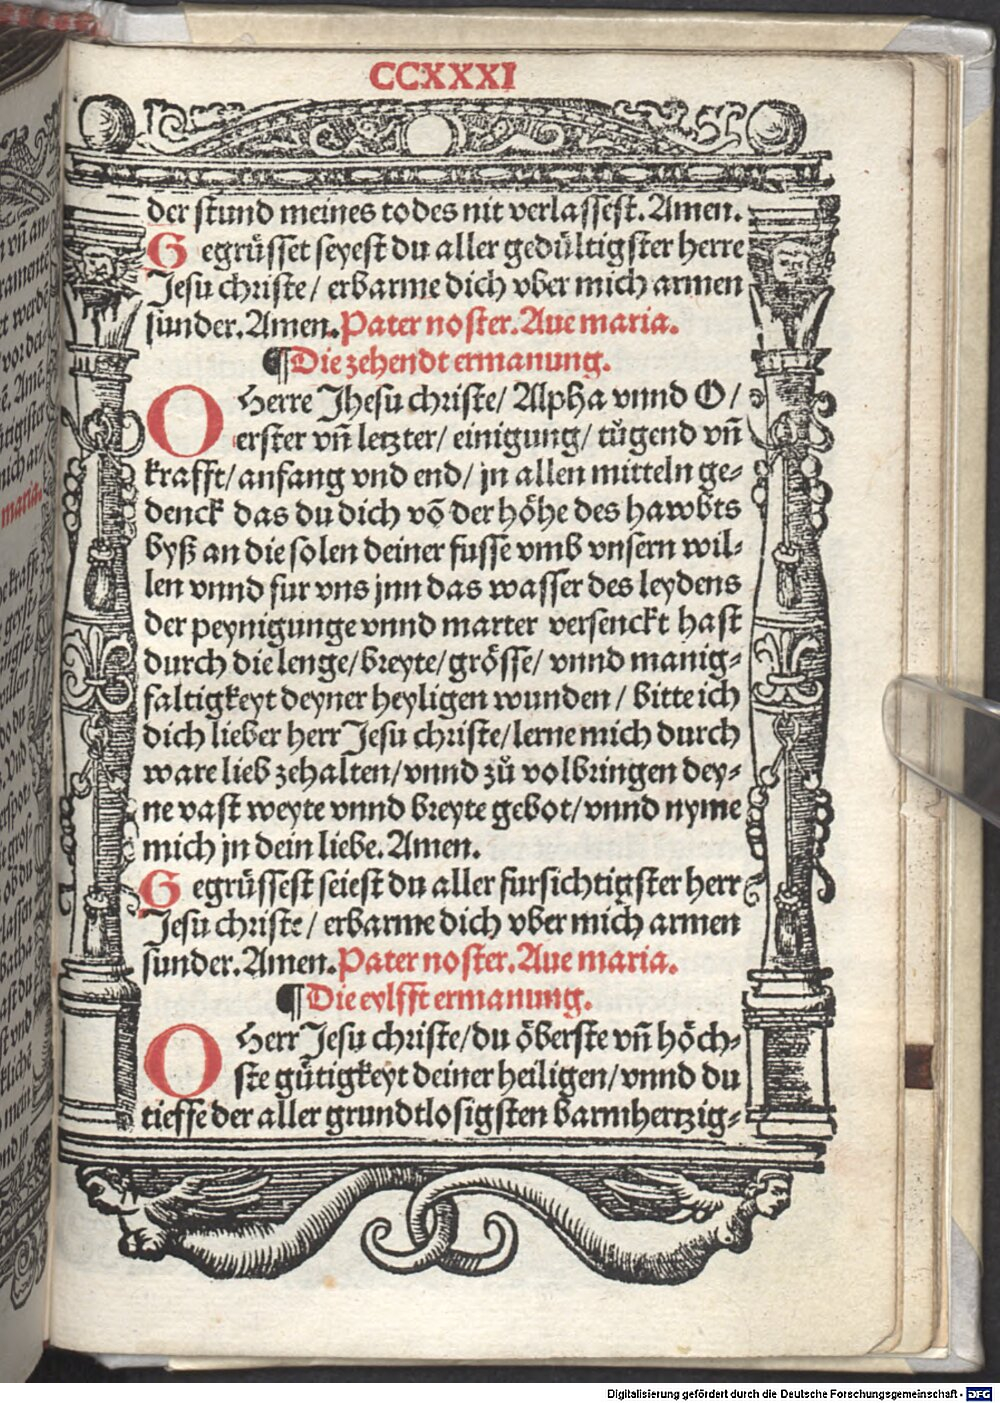 CCXXXI
der stund meines todes nit verlassest. Amen.
Gegrüsset seyest du aller gedültigster herre
Jesu christe/ erbarme dich vber mich armen
sunder. Amen. Pater noster. Aue maria.
¶Die zehendt ermanung.
O Herre Jhesu christe/ Alpha vnnd O/
erster vñ letzter/ einigung/ tůgend vñ
krafft/ anfang vnd end/ jn allen mitteln ge-
denck das du dich võ der höhe des hawbts
byß an die solen deiner fusse vmb vnsern wil-
len vnnd fur vns jnn das wasser des leydens
der peynigunge vnnd marter versenckt hast
durch die lenge/ breyte/ grösse/ vnnd manig-
faltigkeyt deyner heyligen wunden / bitte ich
dich lieber herr Jesu christe/ lerne mich durch
ware lieb zehalten/ vnnd zů volbringen dey-
ne vast weyte vnnd breyte gebot/ vnnd nyme
mich jn dein liebe. Amen.
Gegrüssest seiest du aller fursichtigster herr
Jesu christe/ erbarme dich vber mich armen
sunder. Amen. Pater noster. Aue maria.
¶Die eylfft ermanung.
O Herr Jesu christe/ du öberste vñ höch-
ste gütigkeyt deiner heiligen/ vnnd du
tieffe der aller grundtlosigsten barmhertzig-
Digitalisierung gefördert durch die Deutsche Forschungsgemeinschaft - DFG